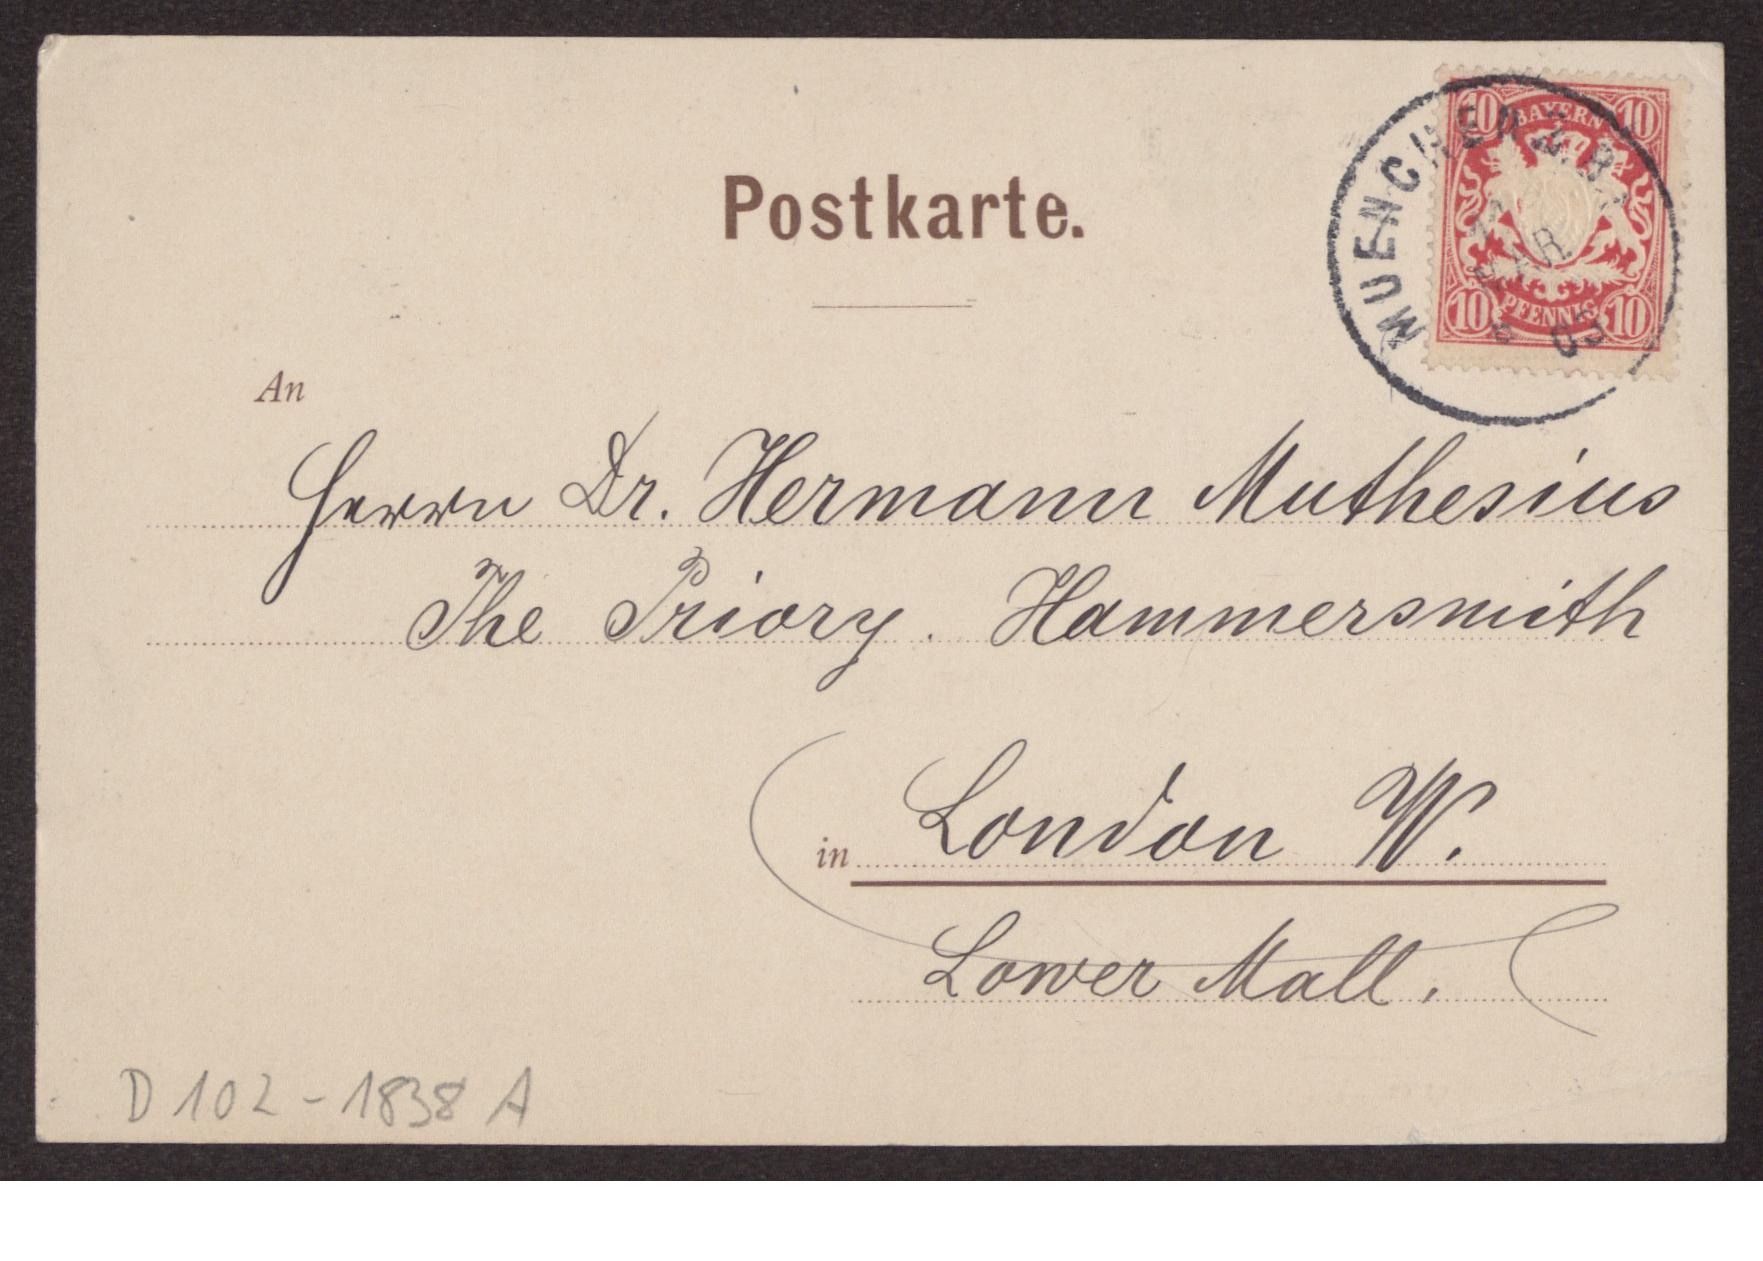 Postkarte.
10 BAYERN 10
10 PFENNIG 10
MUENCHEN
MAR.
03
An
Herrn Dr. Hermann Muthesius
The Priory. Hammersmith
in London W.
Lower Mall.
D 102-1838 A